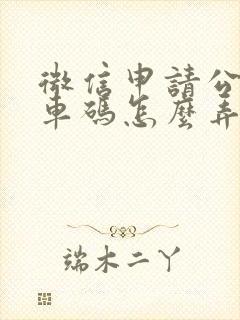 微信申請公
車碼怎麼弄
端木二丫